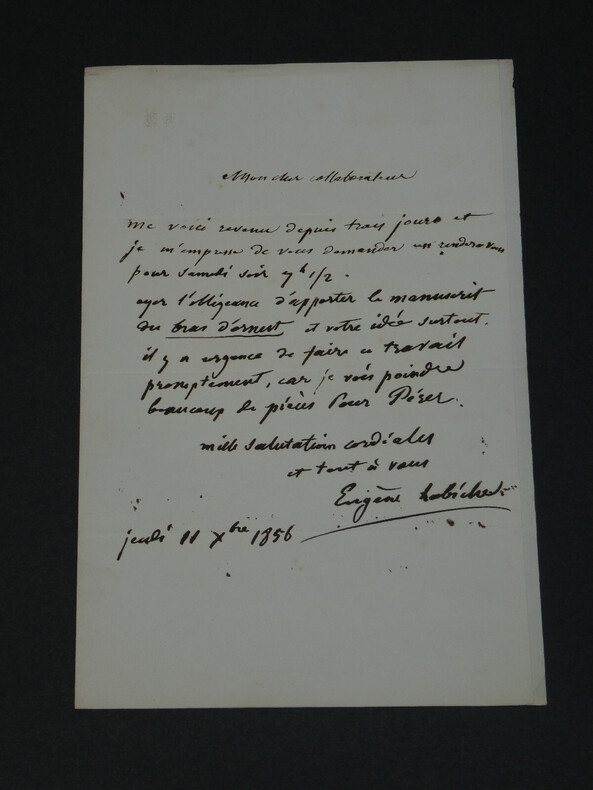 Mon cher collaborateur
me voici revenu depuis trois jours et
je m'empresse de vous demander un rendez vous
pour samedi soir 7h 1/2.
ayez l'obligeance d'apporter le manuscrit
du bras d'ernest et votre idée surtout.
il y a urgence de faire ce travail
promptement, car je vois poindre
beaucoup de pièces pour Pérer.
mille salutations cordiales
et tout à vous
Eugène Labiche
jeudi 11 Xbre 1856